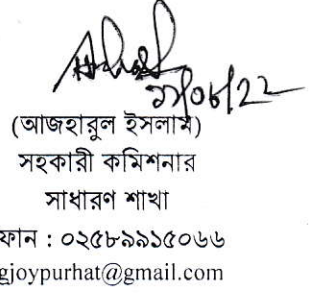 ২২/০৬/২২
(আজহারুল ইসলাম)
সহকারী কমিশনার
সাধারণ শাখা
ফোন : ০২৫৮৯৯১৫০৬৬
gjoypurhat@gmail.com